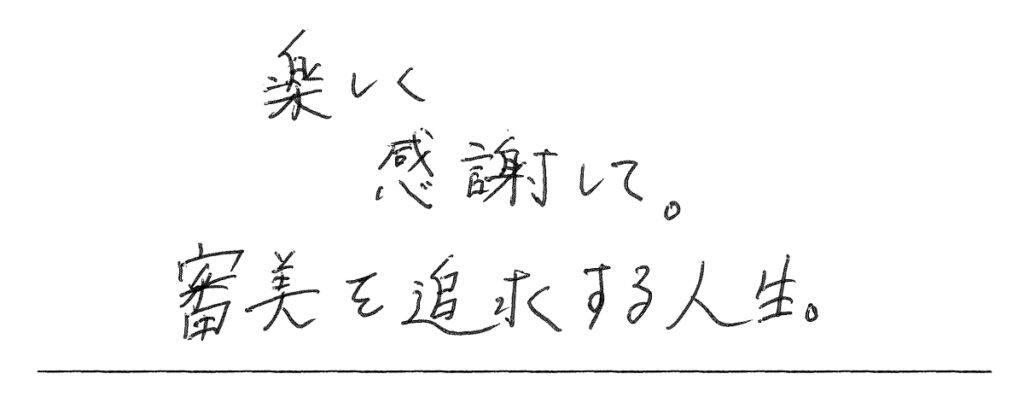 楽しく
感謝して。
審美を追求する人生。